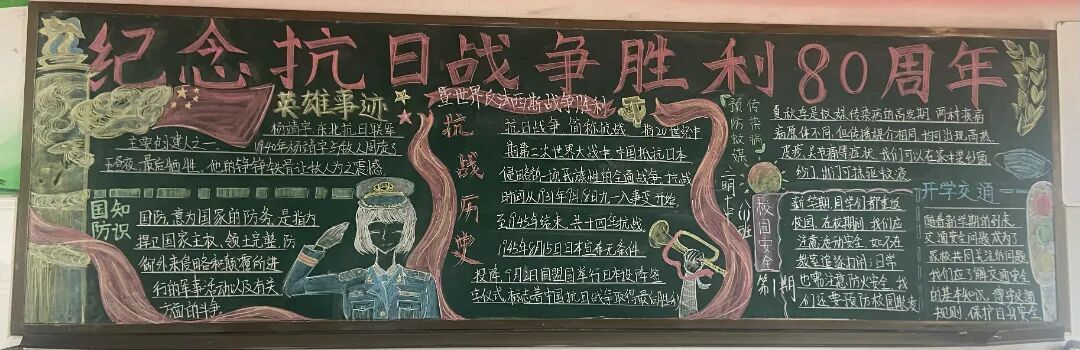 纪念抗日战争胜利80周年
暨世界反法西斯战争胜利
英雄事迹
杨靖宇 东北抗日联军
主要创建人之一
1940年杨靖宇与敌人周旋了
昼夜 最后牺牲 他的铮铮铁骨让敌人为之震撼
国防知识
国防,意为国家的防务,是指为
捍卫国家主权、领土完整,防
御外来侵略和颠覆所进
行的军事活动以及有关
方面的斗争
抗战历史
抗日战争,简称抗战 指20世纪中
期第二次世界大战中,中国抵抗日本
侵略的一场民族性的全面战争 抗战
时间从1931年9月18日九一八事变开始
至1945年结束,共十四年抗战
1945年8月15日日本宣布无条件
投降 9月2日同盟国举行日本投降签
字仪式 标志着中国抗日战争取得最后胜利
预防传染病
二明十中
八(1)班
第1期
夏秋季是蚊媒传染病的高发期 两种疾病
病原体不同,但传播媒介相同,均可出现高热
皮疹、关节痛等症状 我们可以在家中装纱窗
校园安全
新学期 同学们都重返
校园,在校期间 我们应
注意运动安全 如不在
教室追逐打闹;日常
也需注意防火安全 我
们还要预防校园欺凌
开学交通
随着新学期的到来
交通安全问题成为了
家校共同关注的问题
我们应了解交通安全
的基本知识,遵守交通
规则,保护自身安全